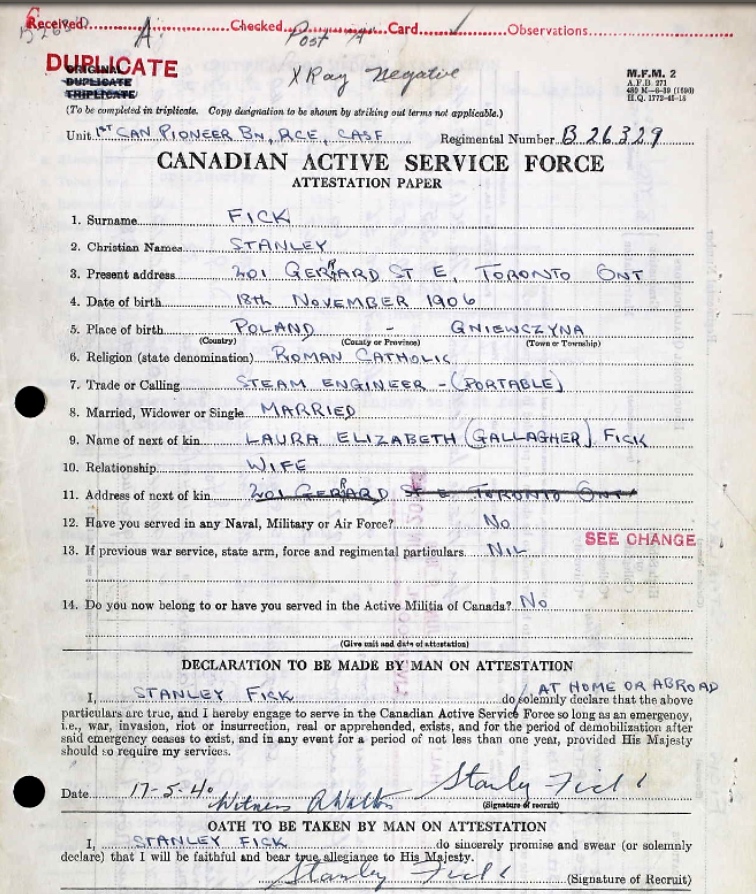 Received A Checked Post Card ✓ Observations
DUPLICATE
ORIGINAL
DUPLICATE
TRIPLICATE
X Ray Negative
M.F.M. 2
A.F.B. 271
H.Q. 1772-45-15
(To be completed in triplicate. Copy designation to be shown by striking out terms not applicable.)
Unit 1ST CAN PIONEER BN, RCE, CASF Regimental Number B 26329
CANADIAN ACTIVE SERVICE FORCE
ATTESTATION PAPER
1. Surname FICK
2. Christian Names STANLEY
3. Present address 201 GERRARD ST E, TORONTO ONT
4. Date of birth 18th NOVEMBER 1906
5. Place of birth POLAND - GNIEWCZYNA
(Country) (County or Province) (Town or Township)
6. Religion (state denomination) ROMAN CATHOLIC
7. Trade or Calling STEAM ENGINEER - (PORTABLE)
8. Married, Widower or Single MARRIED
9. Name of next of kin LAURA ELIZABETH (GALLAGHER) FICK
10. Relationship WIFE
11. Address of next of kin 201 GERRARD ST E TORONTO ONT
12. Have you served in any Naval, Military or Air Force? NO
SEE CHANGE
13. If previous war service, state arm, force and regimental particulars. NIL
14. Do you now belong to or have you served in the Active Militia of Canada? NO
(Give unit and date of attestation)
DECLARATION TO BE MADE BY MAN ON ATTESTATION
AT HOME OR ABROAD
I, STANLEY FICK do solemnly declare that the above
particulars are true, and I hereby engage to serve in the Canadian Active Service Force so long as an emergency,
i.e., war, invasion, riot or insurrection, real or apprehended, exists, and for the period of demobilization after
said emergency ceases to exist, and in any event for a period of not less than one year, provided His Majesty
should so require my services.
Date 17-5-40 Witness Stanley Fick
(Signature of recruit)
OATH TO BE TAKEN BY MAN ON ATTESTATION
I, STANLEY FICK do sincerely promise and swear (or solemnly
declare) that I will be faithful and bear true allegiance to His Majesty.
Stanley Fick (Signature of Recruit)